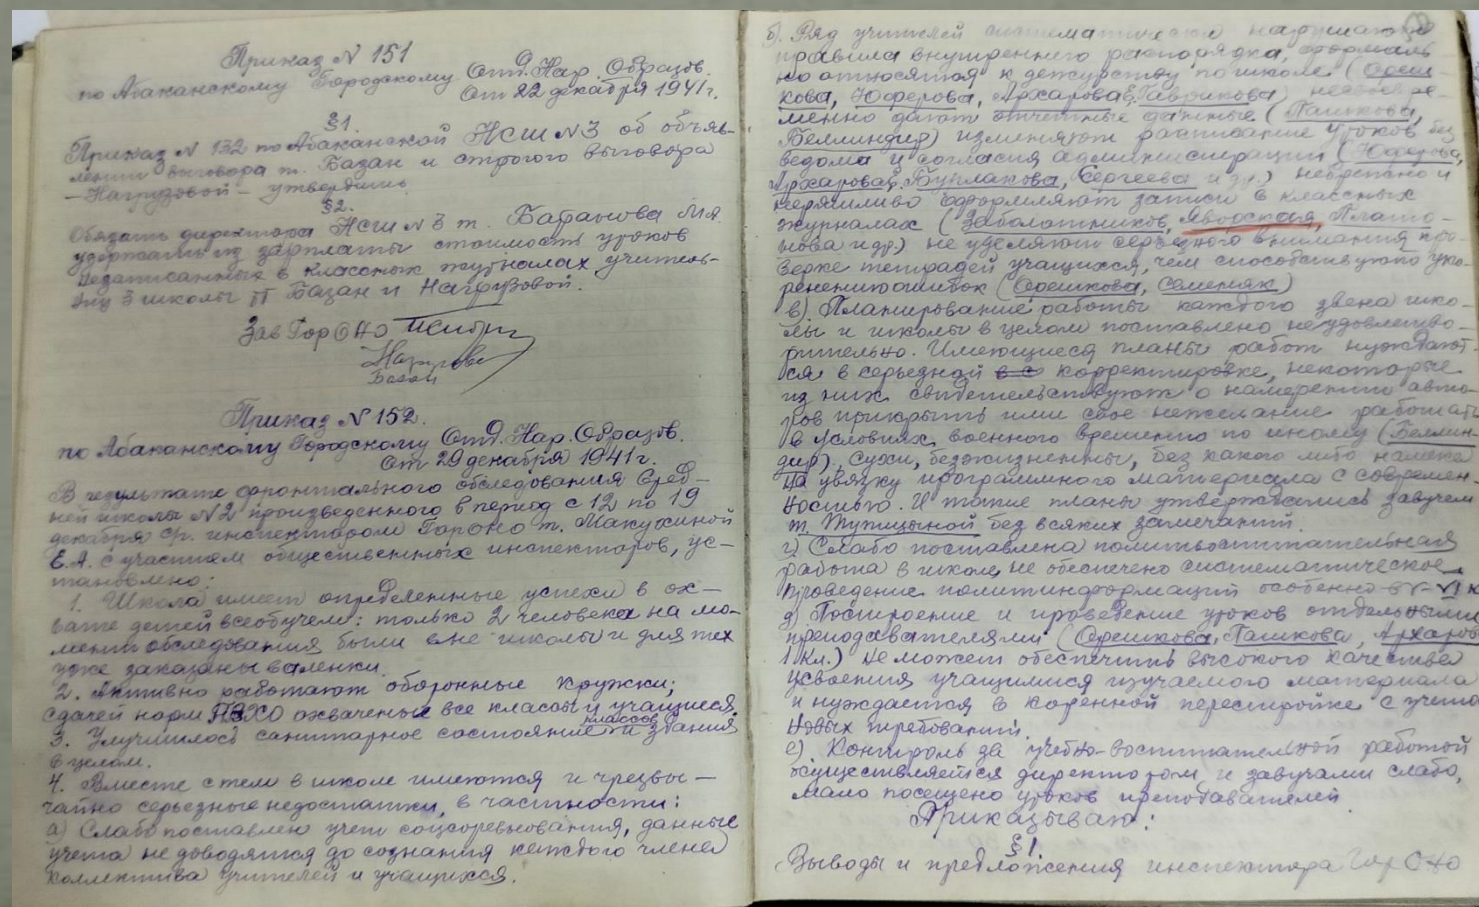 Приказ N 151
по Абаканскому Городскому Отд. Нар. Образов.
От 22 декабря 1941 г.
§1.
Приказ N 132 по Абаканской НСШ N 3 об объяв-
лении выговора т. Базан и строгого выговора
— Нагрузовой — утвердить.
§2.
Обязать директора НСШ N 3 т. Баранова М.А.
удержать из зарплаты стоимость уроков
незаписанных в классных журналах учитель-
ниц 3 школы тт Базан и Нагрузовой.
Зав Гор ОНО
Базан
Приказ N 152.
по Абаканскому Городскому Отд. Нар. Образов.
от 29 декабря 1941 г.
В результате фронтального обследования Сред-
ней школы N 2 произведенного в период с 12 по 19
декабря ст. инспектором ГорОНО т. Макухиной
Е.А. с участием общественных инспекторов, ус-
тановлено:
1. Школа имеет определенные успехи в ох-
вате детей всеобучем: только 2 человека на мо-
мент обследования были вне школы и для тех
уже заказаны валенки.
2. Активно работают оборонные кружки;
сдачей норм ПВХО охвачены все классы и учащиеся.
3. Улучшилось санитарное состояние классов и здания
в целом.
4. Вместе с тем в школе имеются и чрезвы-
чайно серьезные недостатки, в частности:
а) Слабо поставлен учет соцсоревнования, данные
учета не доводятся до сознания каждого члена
коллектива учителей и учащихся.
б). Ряд учителей систематически нарушают
правила внутреннего распорядка, формаль
но относятся к дежурству по школе (Ореш-
кова, Юферова, Архарова, Гаврикова) несвоевре-
менно дают отчетные данные (Пашкова,
Беллиндир) изменяют расписание уроков без
ведома и согласия администрации (Юферова,
Архарова, Буллакова, Сергеева и др.) небрежно и
неряшливо оформляют записи в классных
журналах (Заболотников, Яворская, Плато-
нова и др.) не уделяют серьезного внимания про-
верке тетрадей учащихся, чем способствуют уко-
ренению ошибок (Орешкова, Семеняк)
в). Планирование работы каждого звена шко-
лы и школы в целом поставлено неудовлетво-
рительно. Имеющиеся планы работ нуждают-
ся в серьезной корректировке, некоторые
из них свидетельствуют о намерении авто-
ров прикрыть ими свое нежелание работать
в условиях военного времени по иному (Беллин-
дир), сухи, безжизненны, без какого либо намека
на увязку программного материала с современ-
ностью. И такие планы утверждались завучем
т. Тупицыной без всяких замечаний.
г) Слабо поставлена политвоспитательная
работа в школе, не обеспечено систематическое
проведение политинформаций особенно в V-VI к
д) Построение и проведение уроков отдельными
преподавателями (Орешкова, Пашкова, Архаров
1 кл.) не может обеспечить высокого качества
усвоения учащимися изучаемого материала
и нуждается в коренной перестройке с учето
новых требований.
е) Контроль за учебно-воспитательной работой
осуществляется директором и завучами слабо,
мало посещено уроков преподавателей.
Приказываю:
§1.
Выводы и предложения инспектора ГорОНО